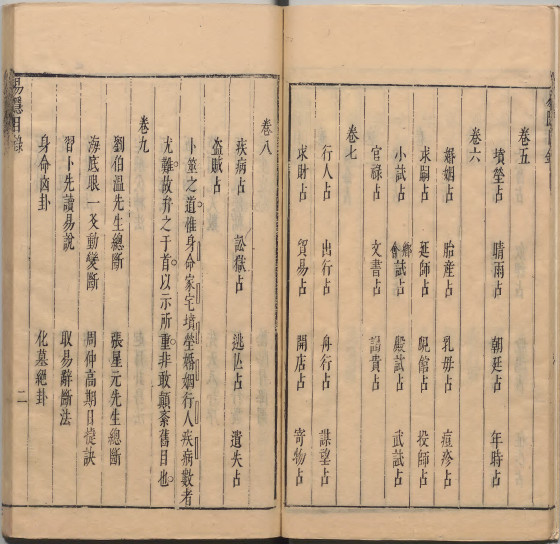 卷五
墳塋占 晴雨占 朝廷占 年時占
卷六
婚姻占 胎產占 乳母占 痘疹占
求嗣占 延師占 覓館占 投師占
小試占 鄉會試占 殿試占 武試占
官祿占 文書占 謁貴占
卷七
行人占 出行占 舟行占 謀望占
求財占 貿易占 開店占 寄物占
卷八
疾病占 訟獄占 逃亡占 遺失占
盜賊占
卜筮之道惟身命家宅墳塋婚姻行人疾病數者
尤難故弁之于首以示所重非敢顛紊舊目也
卷九
劉伯溫先生總斷 張星元先生總斷
海底眼一爻動變斷 周仲高期日捷訣
習卜先讀易說 取易辭斷法
身命凶卦 化墓絕卦
易隱目錄
二